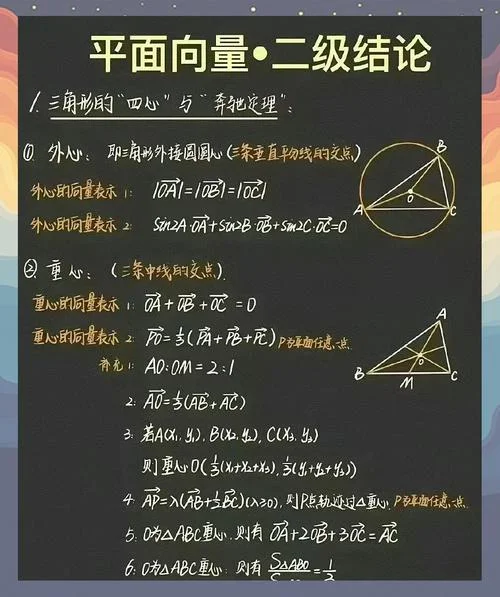 平面向量•二级结论
1. 三角形的“四心”与“奔驰定理”:
① 外心: 即三角形外接圆圆心(三条垂直平分线的交点)
外心的向量表示 1: |OA|=|OB|=|OC|
外心的向量表示 2: Sin2A·OA+Sin2B·OB+Sin2C·OC=0
A
B
C
O
② 重心: (三条中线的交点)
重心的向量表示 1: OA+OB+OC=0
重心的向量表示 2: PO=1/3(PA+PB+PC) P为平面任意一点
补充 1: AO:OM=2:1
2: AO=1/3(AB+AC)
A
B
C
O
M
3: 若A(x₁,y₁), B(x₂,y₂), C(x₃,y₃)
则重心O(1/3(x₁+x₂+x₃), 1/3(y₁+y₂+y₃))
4: AP=λ(AB+1/2BC)(λ≥0), 则P点轨迹过△重心, P为平面任意一点
5: O为△ABC重心, 则有 OA+2OB+3OC=AC
6: O为△ABC重心: 则有 S△ABO